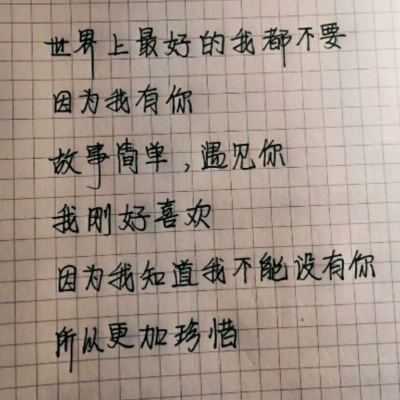 世界上最好的我都不要
因为我有你
故事简单,遇见你
我刚好喜欢
因为我知道我不能没有你
所以更加珍惜